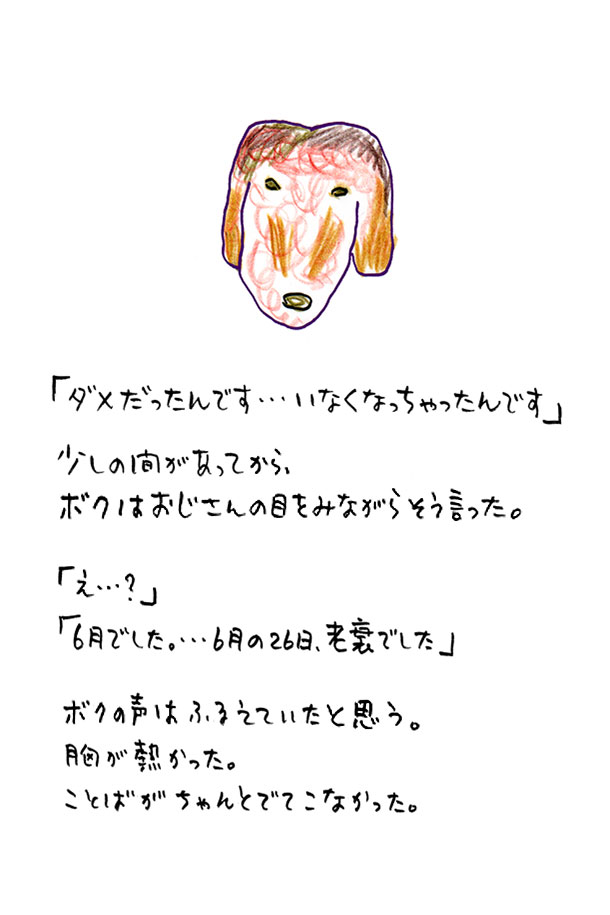 「ダメだったんです…いなくなっちゃったんです」
少しの間があってから、
ボクはおじさんの目をみながらそう言った。
「え…？」
「6月でした。…6月の26日、老衰でした」
ボクの声はふるえていたと思う。
胸が熱かった。
ことばがちゃんとでてこなかった。